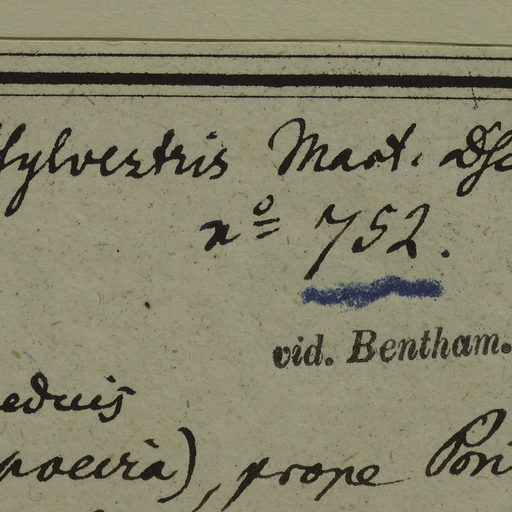 Sylvestris Mart.
nº 752.
vid. Bentham.
eduis
poeira), prope